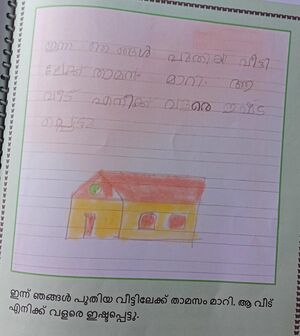 ഇന്ന് ഞങ്ങൾ പുതിയ വീട്ടി
ലേക്ക് താമസം മാറി. ആ
വീട് എനിക്ക് വളരെ ഇഷ്ട
പ്പെട്ടു
ഇന്ന് ഞങ്ങൾ പുതിയ വീട്ടിലേക്ക് താമസം മാറി. ആ വീട്
എനിക്ക് വളരെ ഇഷ്ടപ്പെട്ടു.